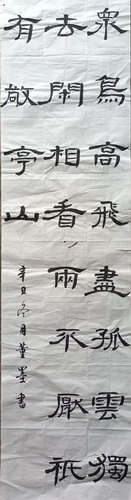 衆鳥高飛盡孤雲獨
去閑相看兩不厭衹
有敬亭山
辛丑冬月董墨書